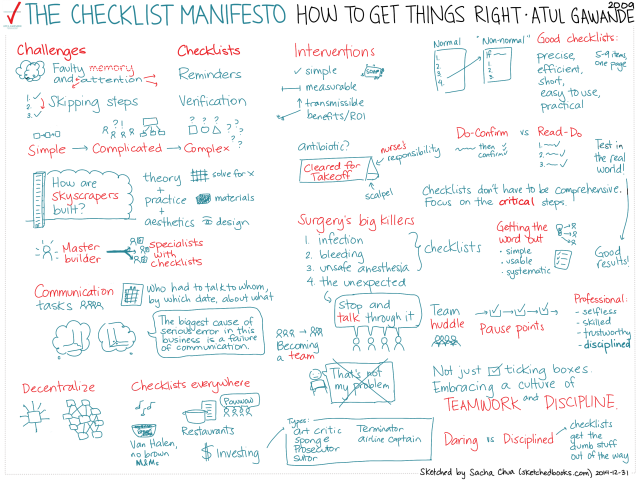 THE CHECKLIST MANIFESTO HOW TO GET THINGS RIGHT · ATUL GAWANDE
2009
Challenges
Faulty memory
and attention
1.
2.
3.
Skipping steps
Simple → Complicated → Complex
Checklists
Reminders
Verification
? !
? ? ? ?
? ?
?
How are
skyscrapers
built?
theory
+
practice
+
aesthetics
solve for x
materials
design
Master
builder
specialists
with
checklists
Communication
tasks
Who had to talk to whom,
by which date, about what
The biggest cause of
serious error in this
business is a failure
of communication.
Decentralize
Checklists everywhere
Van Halen,
no brown
M&Ms
Powwow
Restaurants
$ Investing
Types:
art critic
sponge
Prosecutor
suitor
Terminator
airline captain
Interventions
✓ simple
soap
measurable
transmissible
benefits/ROI
antibiotic?
Cleared for
Takeoff
nurse's
responsibility
scalpel
Surgery's big killers
1. infection
2. bleeding
3. unsafe anesthesia
4. the unexpected
checklists
Stop and
talk through it
Becoming
a team
That's not
my problem
Normal
1.
2.
3.
4.
"Non-normal"
1.
2.
3.
Good checklists:
precise,
efficient,
short,
easy to use,
practical
5-9 items,
one page
Do-Confirm vs Read-Do
then
confirm
1. ✓
2. ✓
3. ✓
Test in
the real
world!
Checklists don't have to be comprehensive.
Focus on the critical steps.
Getting the
word out
· simple
· usable
· systematic
Good
results!
Team
huddle
Pause points
Professional:
· selfless
· skilled
· trustworthy
· disciplined
Not just ☑ ticking boxes.
Embracing a culture of
TEAMWORK and DISCIPLINE.
Daring vs Disciplined
checklists
get the
dumb stuff
out of the way
Sketched by Sacha Chua (sketchedbooks.com) 2014-12-31